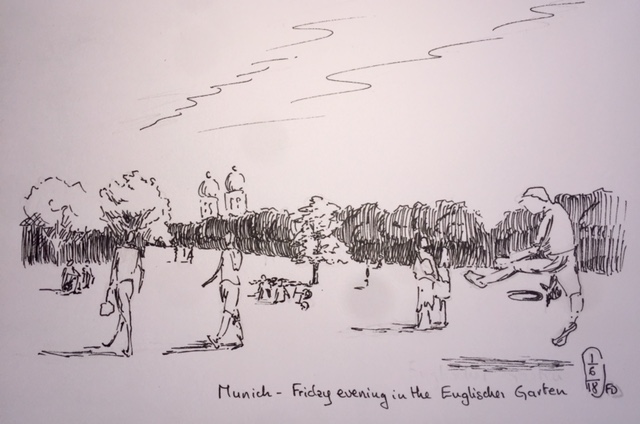 Munich - Friday evening in the Englischer Garten
1
6
18
FD